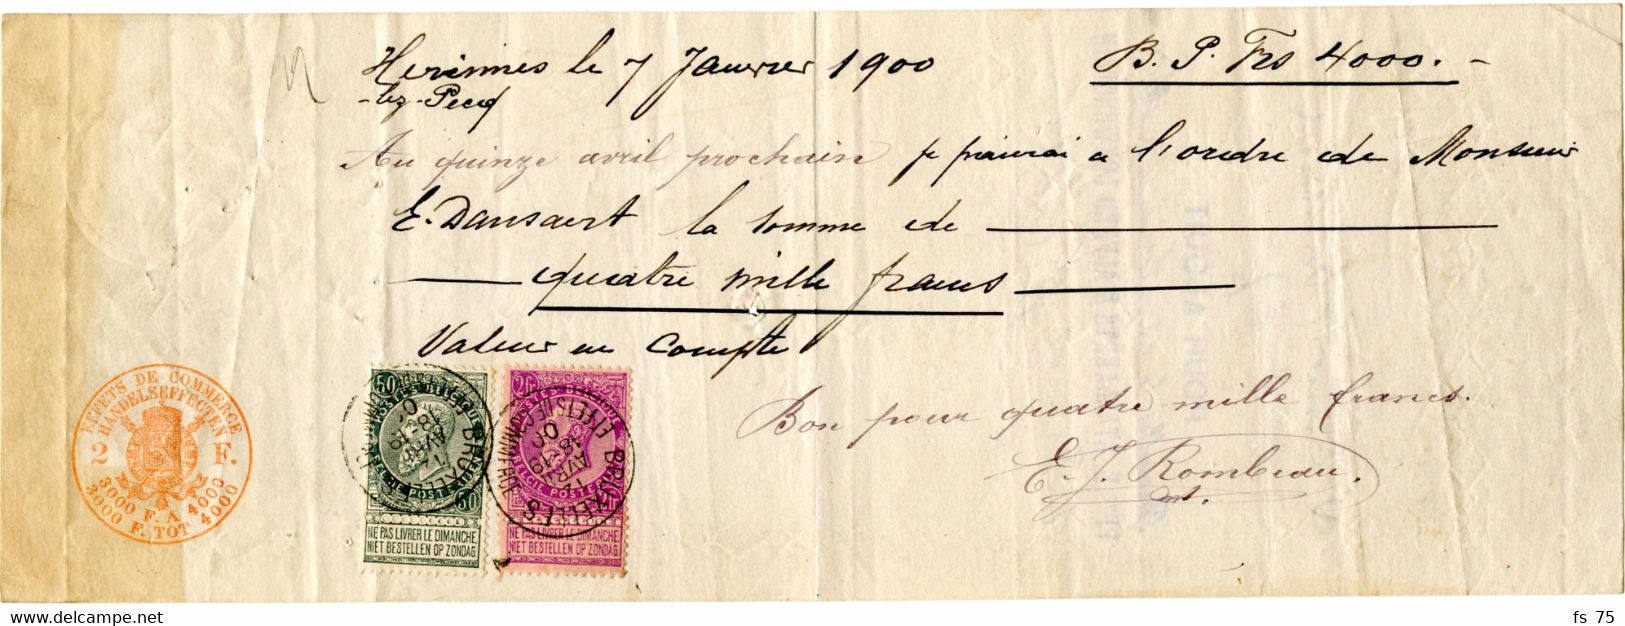 Herinnes le 7 Janvier 1900
B. P. Frs 4000.-
-lez-Pecq
Au quinze avril prochain je paierai a l'ordre de Monsieur
E. Dansaert la somme de
quatre mille francs
Valeur en compte
Bon pour quatre mille francs.
E. J. Rombeau.
EFFETS DE COMMERCE
HANDELSEFFECTEN
2 F.
3000 F. A 4000
3000 F. TOT 4000
50
POSTES BELGIQUE
BELGIE POSTERIJEN
50
NE PAS LIVRER LE DIMANCHE
NIET BESTELLEN OP ZONDAG
2Fr
POSTES BELGIQUE
BELGIE POSTERIJEN
2Fr
NE PAS LIVRER LE DIMANCHE
NIET BESTELLEN OP ZONDAG
BRUXELLES
12 AVRIL
BRUXELLES
EFFETS DE COMMERCE
12 AVRIL
fs 75